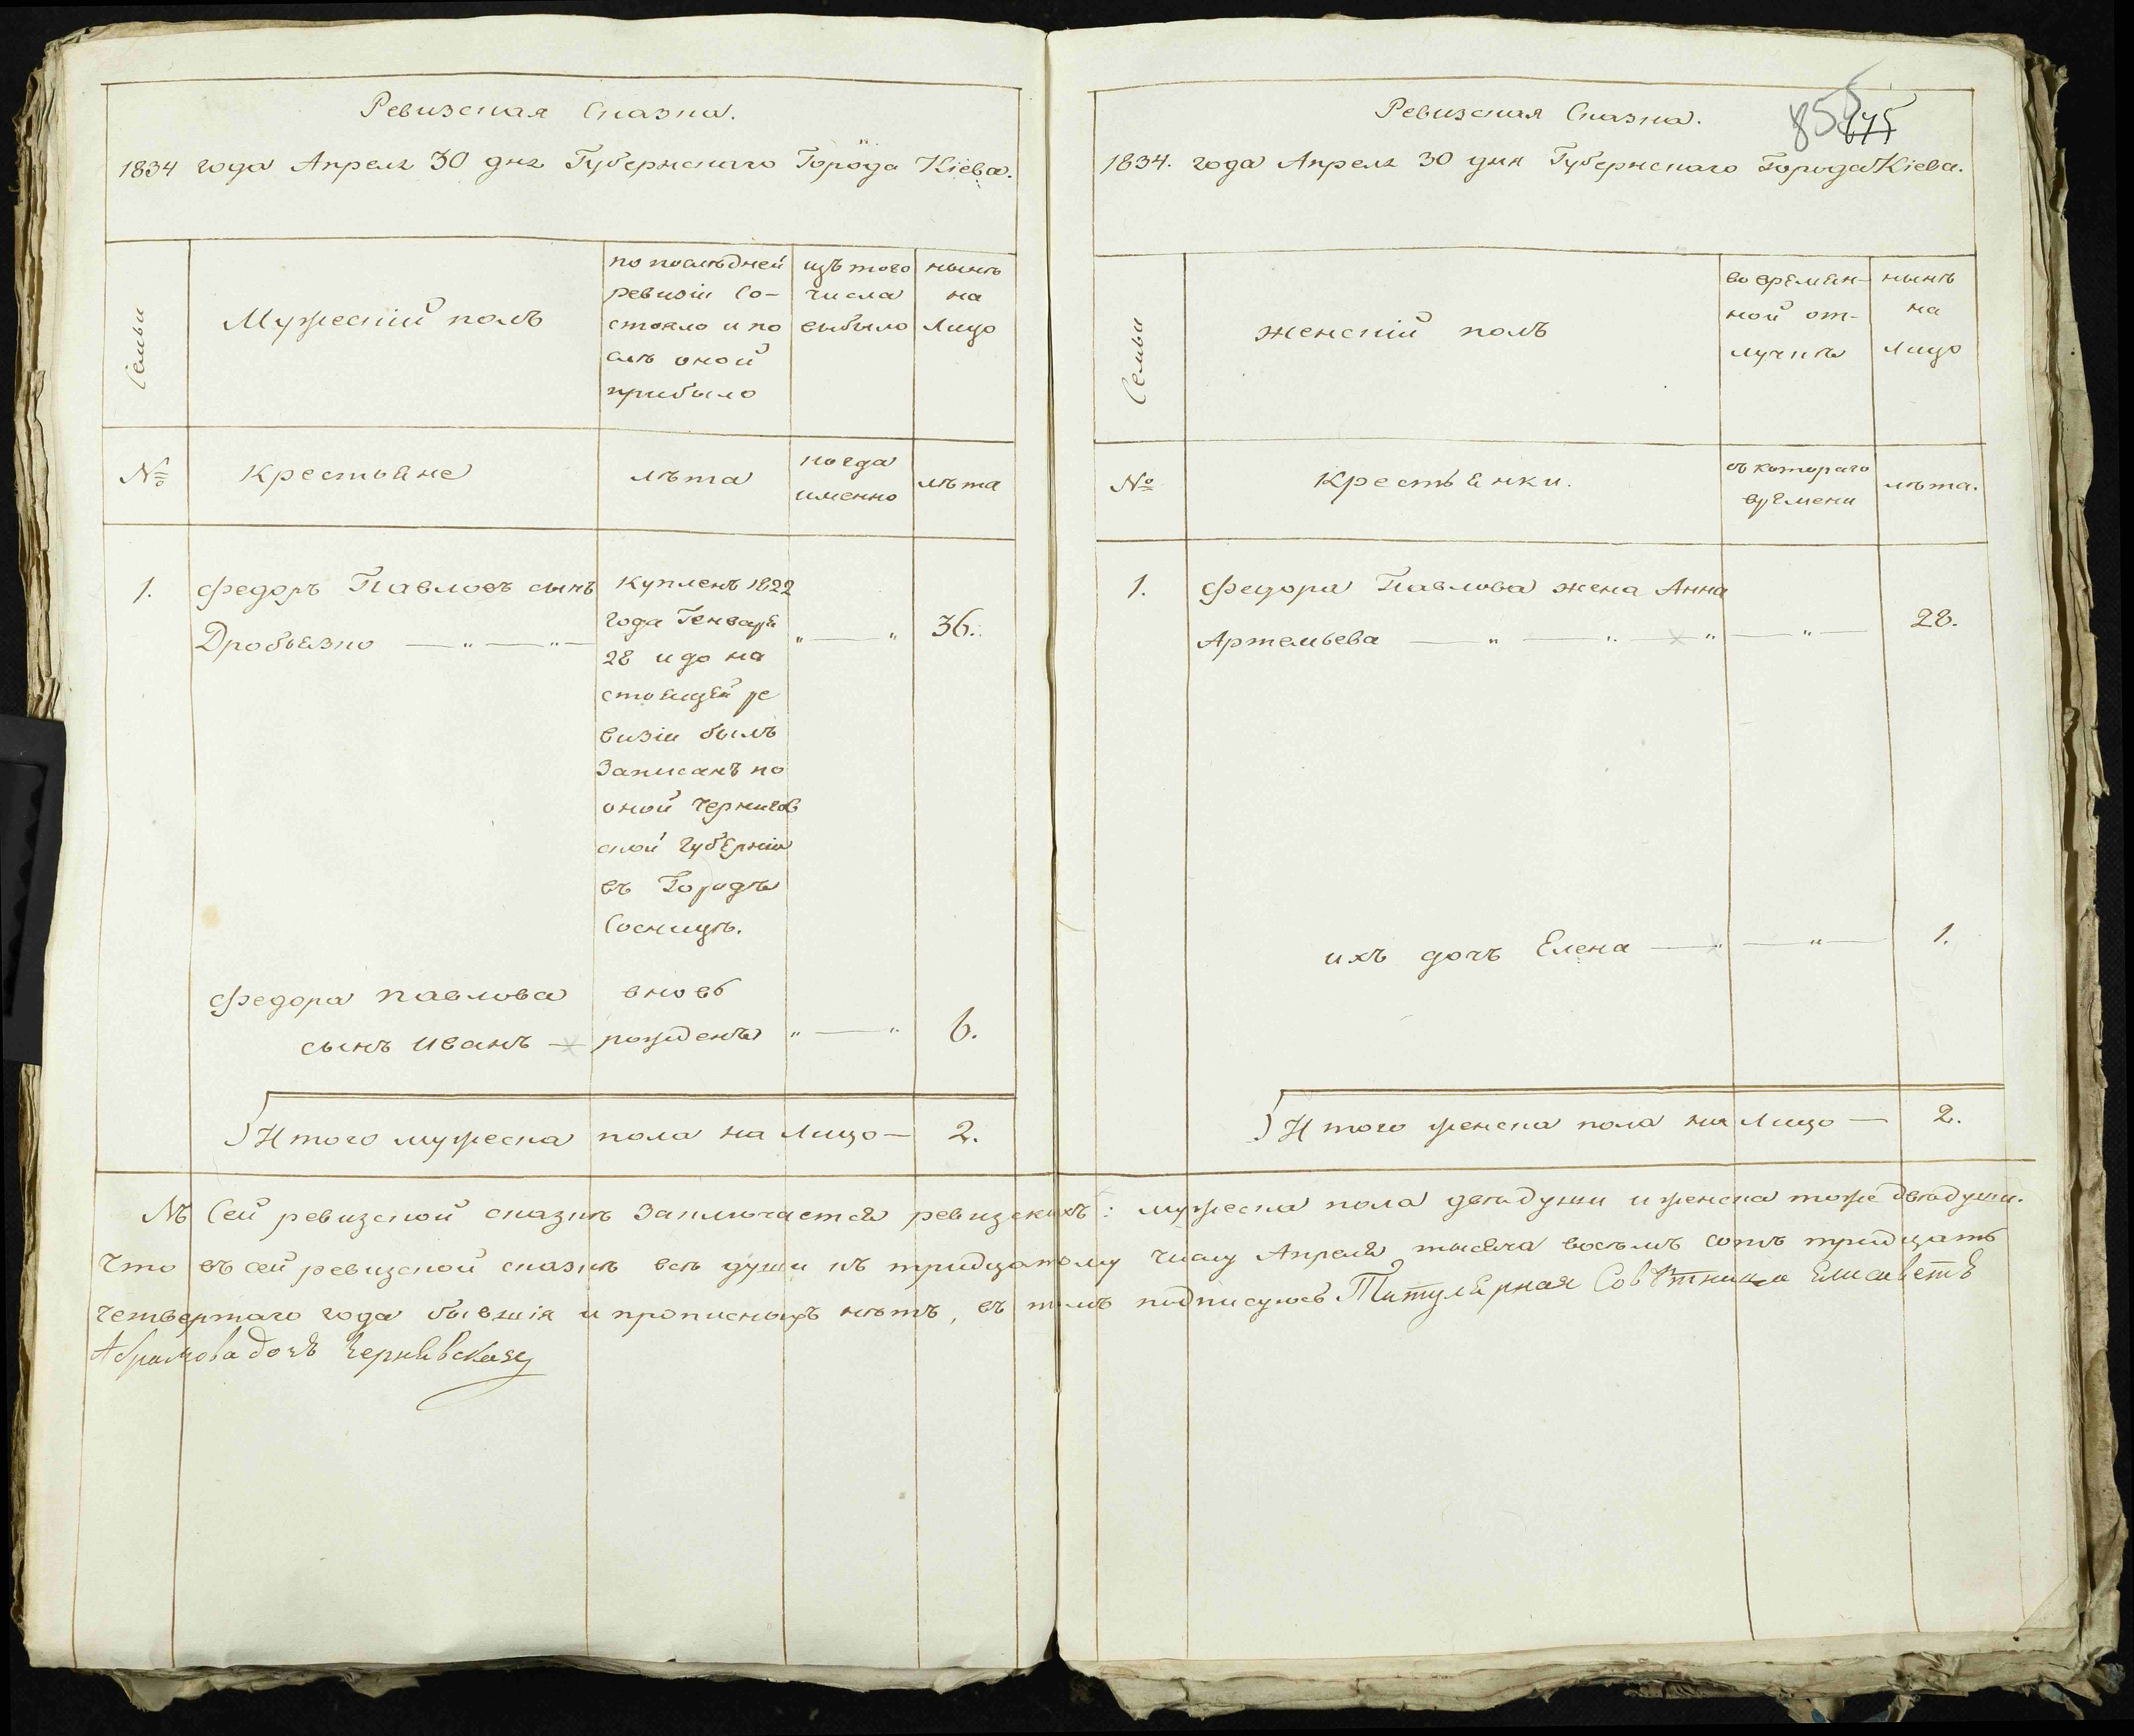 Ревизская Сказка.
1834 года Апреля 30 дня Губернскаго Города Кіева.
Семьи
Мужескій полъ
по последней
ревизіи Со-
стояло и по
слѣ оной
прибыло
изъ того
числа
выбыло
нынѣ
на
Лицо
№
Крестьяне
лѣта
когда
именно
лѣта
1.
Федоръ Павловъ сынъ
Дробьязко — „ — „ —
купленъ 1822
года Генваря
28 и до на
стоящей ре
визіи былъ
Записанъ по
оной Чернигов
ской Губерніи
въ Городѣ
Сосницѣ.
„ — „
36.
Федора Павлова
сынъ Иванъ —
вновь
рожденъ
„ — „
6.
Итого мужеска пола на Лицо — 2.
Ревизская Сказка.
855
675
1834. года Апреля 30 дня Губернскаго Города Кіева.
Семьи
женскій полъ
во времян-
ной от-
лучкѣ
нынѣ
на
Лицо
№
Крестьянки.
съ котораго
времени
лѣта.
1.
Федора Павлова жена Анна
Артемьева — „ — „ — „ — „ — 28.
ихъ дочь Елена — „ — „ — 1.
Итого женска пола на Лицо — 2.
Въ Сей ревизской сказкѣ Заключается ревизскихъ: мужеска пола двѣ души и женска тоже двѣ души.
Что въ сей ревизской сказкѣ всѣ души къ тридцатому числу Апреля тысяча восемъ сотъ тридцать
четвертаго года бывшія и прописныхъ нѣтъ, въ томъ подписуюсь Титулярная Совѣтница Елисаветѣ
Абрамова дочъ Чернявская